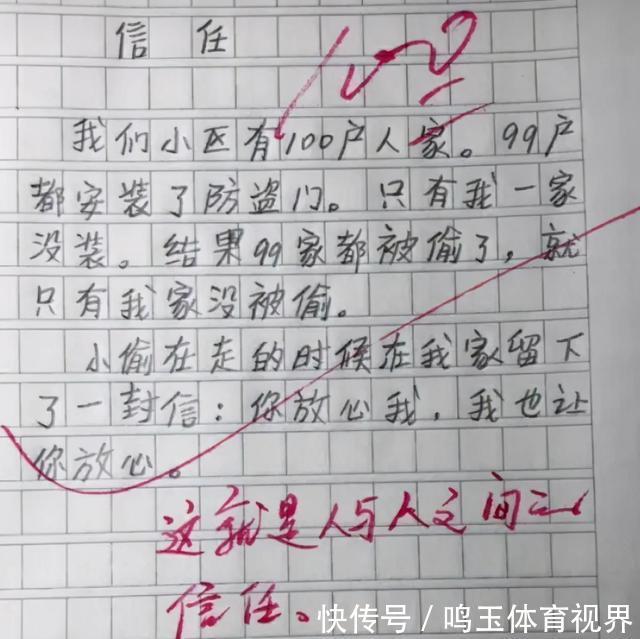 信任
100
我们小区有100户人家。99户
都安装了防盗门。只有我一家
没装。结果99家都被偷了，就
只有我家没被偷。
小偷在走的时候在我家留下
了一封信：你放心我，我也让
你放心。
这就是人与人之间
信任。
快传号／鸣玉体育视界